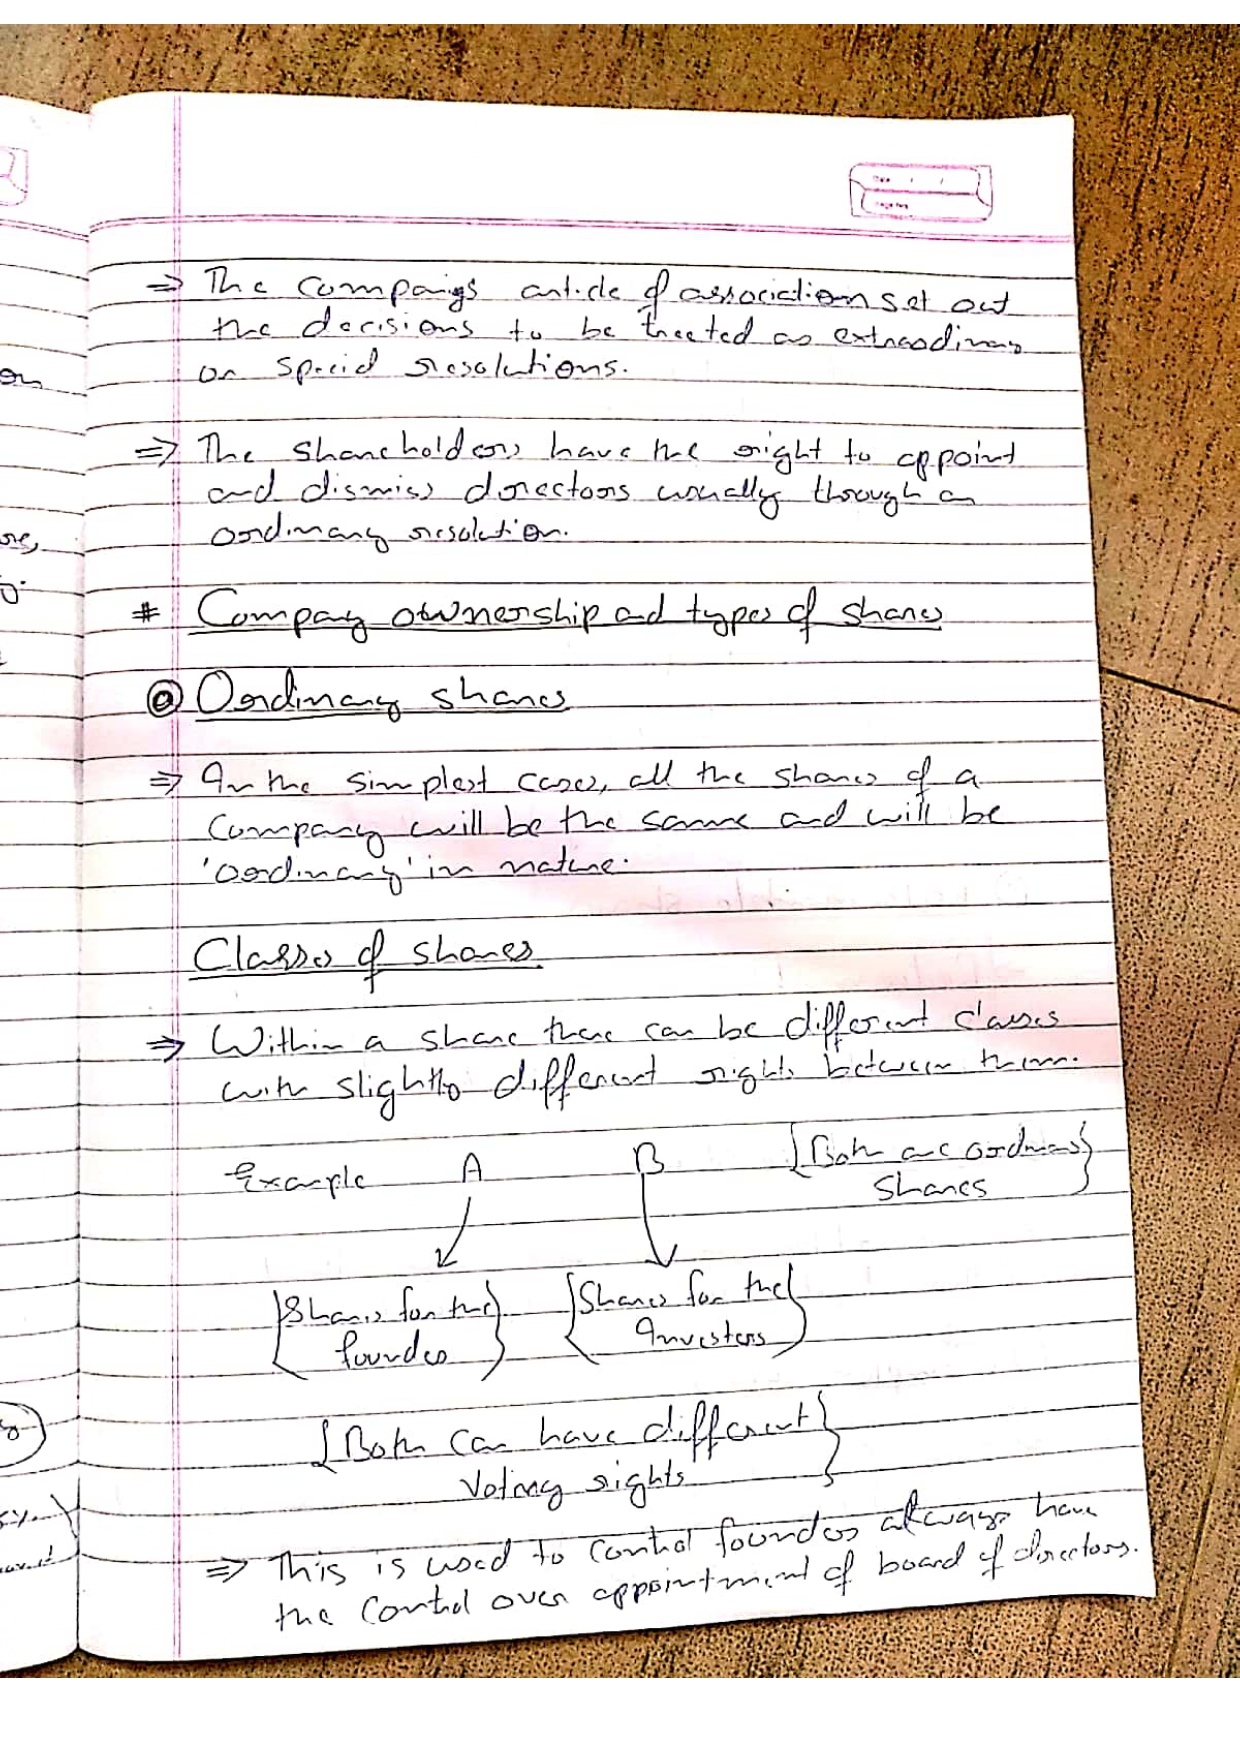 Date / /
⇒ The Company's article of association set out
the decisions to be treated as extraordinary
or special resolutions.
⇒ The shareholders have the right to appoint
and dismiss directors usually through an
ordinary resolution.
# Company ownership and types of shares
@ Ordinary shares
⇒ In the simplest cases, all the shares of a
Company will be the same and will be
'ordinary' in nature.
Classes of shares
⇒ Within a share there can be different classes
with slightly different rights between them.
Example A B {Both are ordinary
shares}
{Shares for the {Shares for the
founders} Investors}
{Both can have different
Voting rights}
⇒ This is used to control founders always have
the control over appointment of board of directors.
on